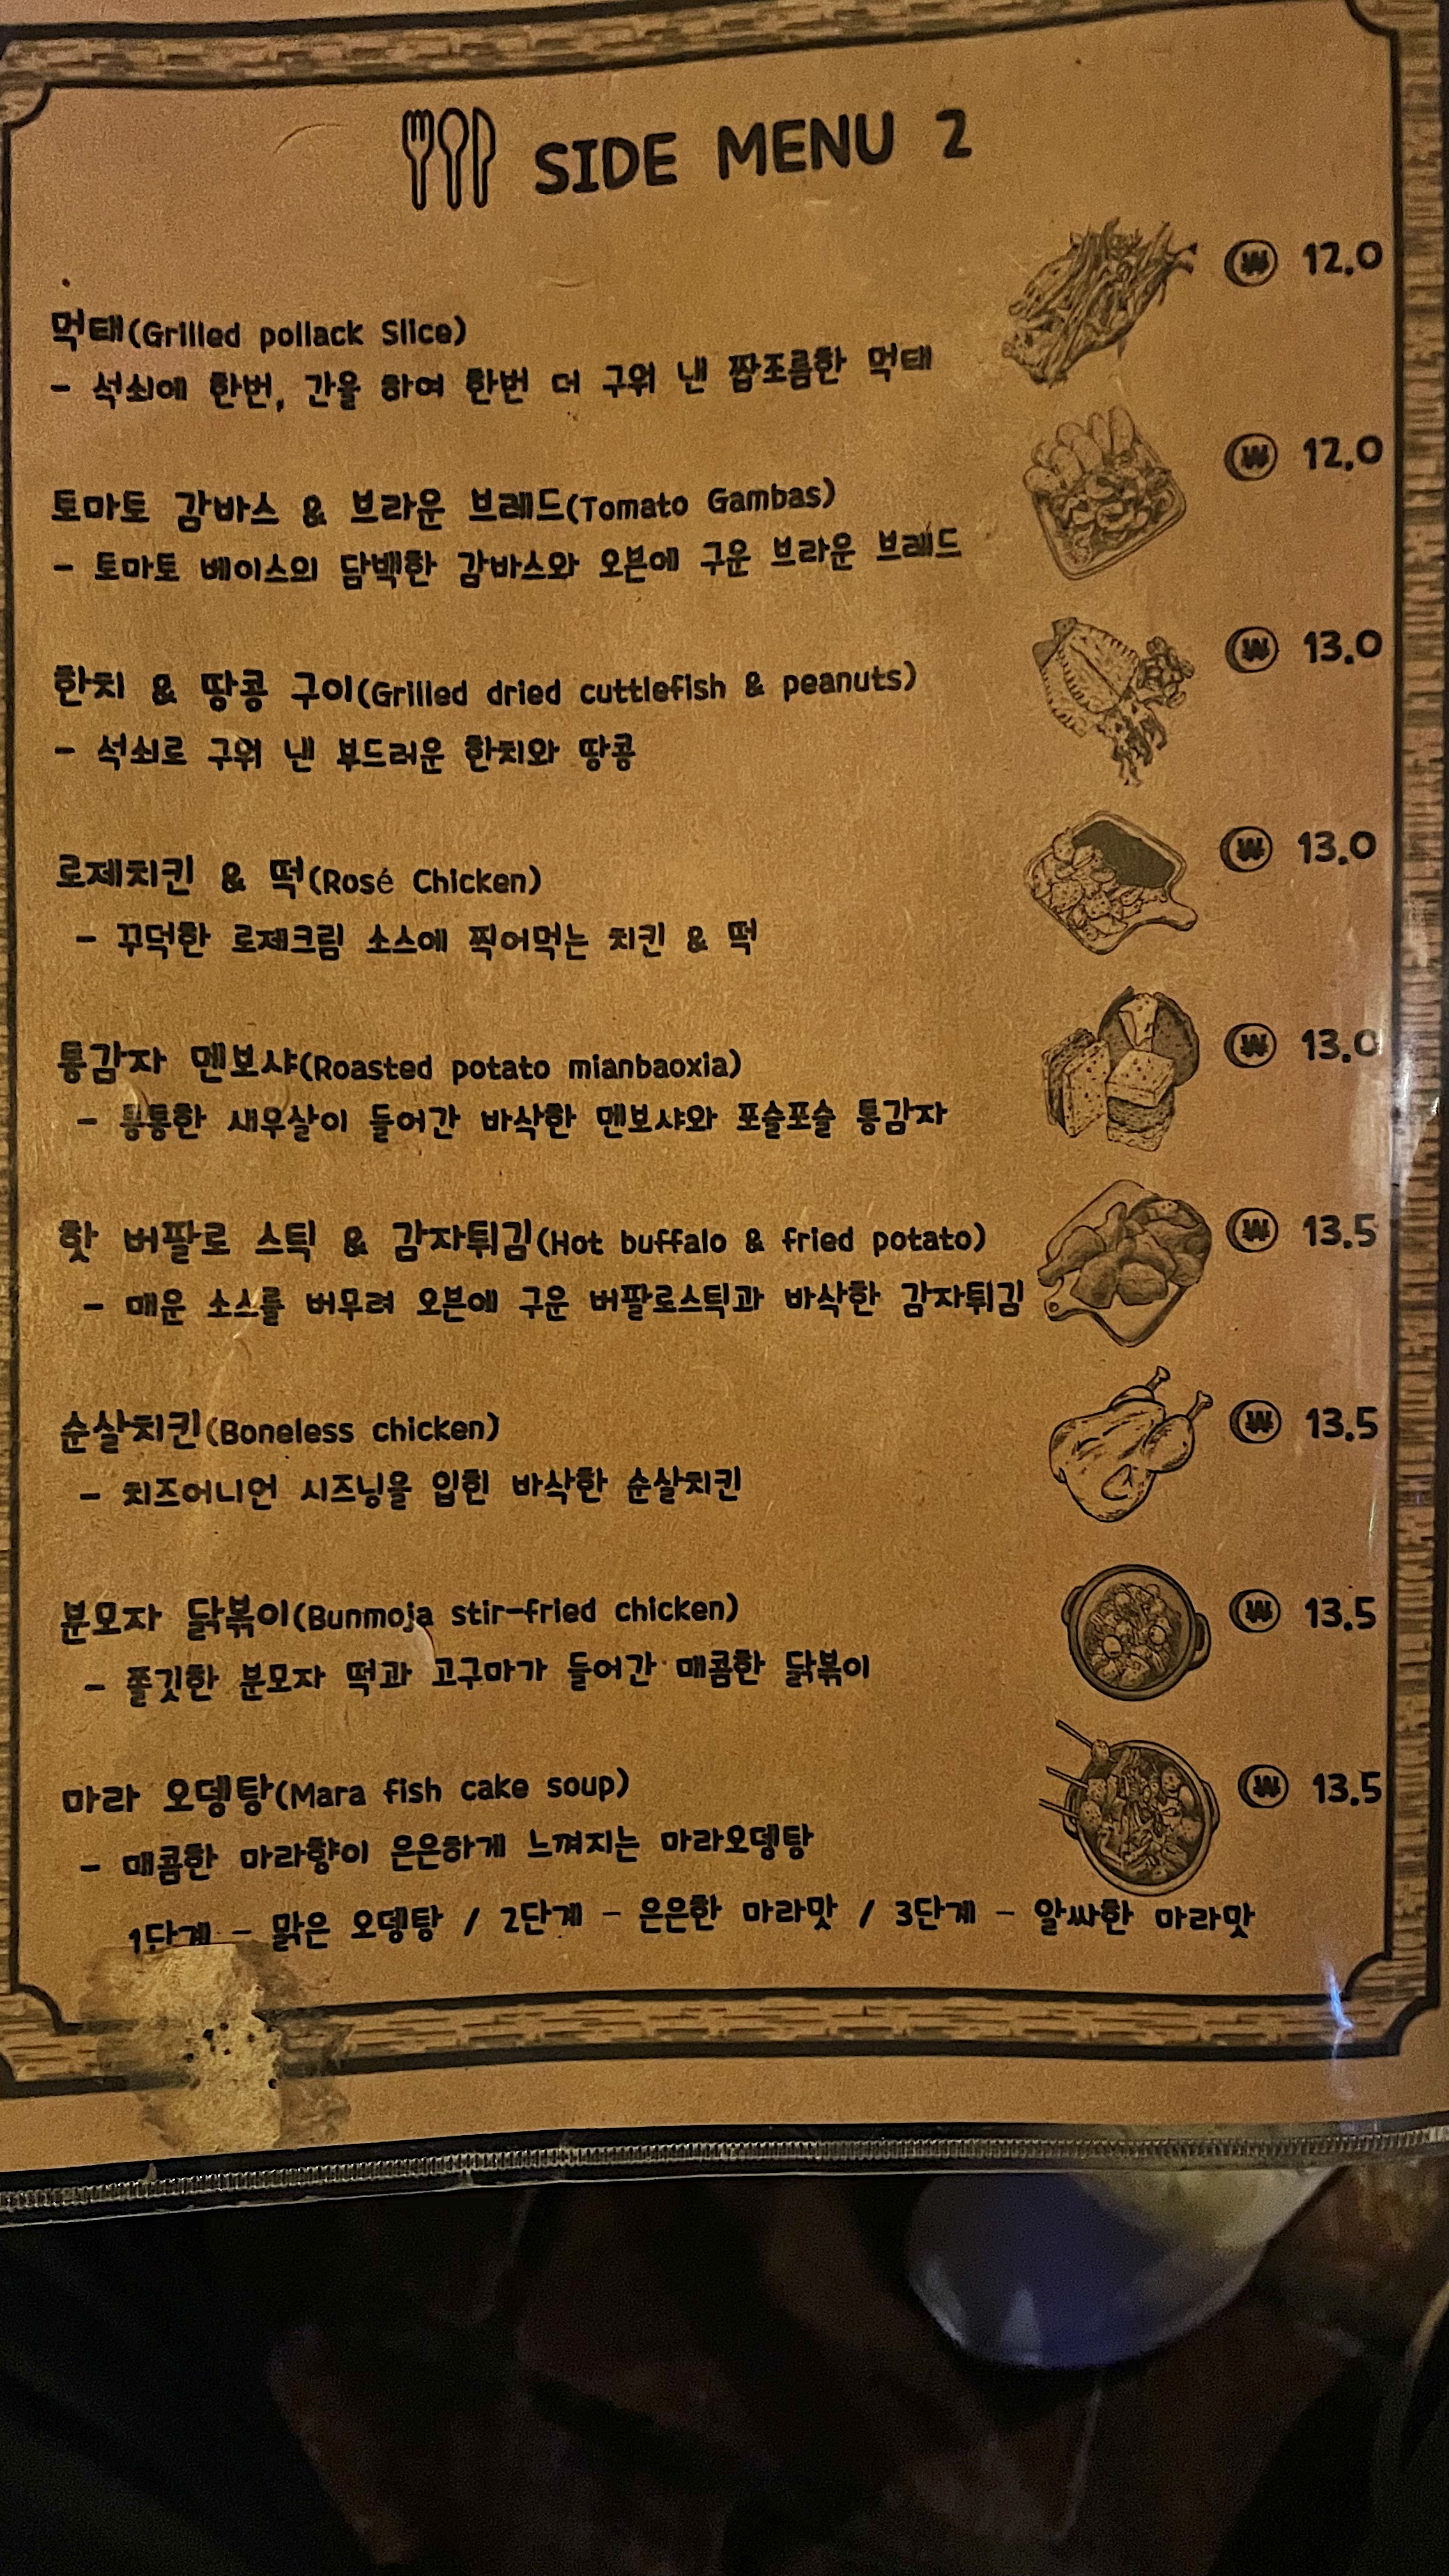 SIDE MENU 2
₩ 12.0
먹태(Grilled pollack Slice)
- 석쇠에 한번, 간을 하여 한번 더 구워 낸 짭조름한 먹태
₩ 12.0
토마토 감바스 & 브라운 브레드(Tomato Gambas)
- 토마토 베이스의 담백한 감바스와 오븐에 구운 브라운 브레드
₩ 13.0
한치 & 땅콩 구이(Grilled dried cuttlefish & peanuts)
- 석쇠로 구워 낸 부드러운 한치와 땅콩
₩ 13.0
로제치킨 & 떡(Rosé Chicken)
- 꾸덕한 로제크림 소스에 찍어먹는 치킨 & 떡
₩ 13.0
통감자 멘보샤(Roasted potato mianbaoxia)
- 통통한 새우살이 들어간 바삭한 멘보샤와 포슬포슬 통감자
₩ 13.5
핫 버팔로 스틱 & 감자튀김(Hot buffalo & fried potato)
- 매운 소스를 버무려 오븐에 구운 버팔로스틱과 바삭한 감자튀김
₩ 13.5
순살치킨(Boneless chicken)
- 치즈어니언 시즈닝을 입힌 바삭한 순살치킨
₩ 13.5
분모자 닭볶이(Bunmoja stir-fried chicken)
- 쫄깃한 분모자 떡과 고구마가 들어간 매콤한 닭볶이
₩ 13.5
마라 오뎅탕(Mara fish cake soup)
- 매콤한 마라향이 은은하게 느껴지는 마라오뎅탕
1단계 - 맑은 오뎅탕 / 2단계 - 은은한 마라맛 / 3단계 - 알싸한 마라맛